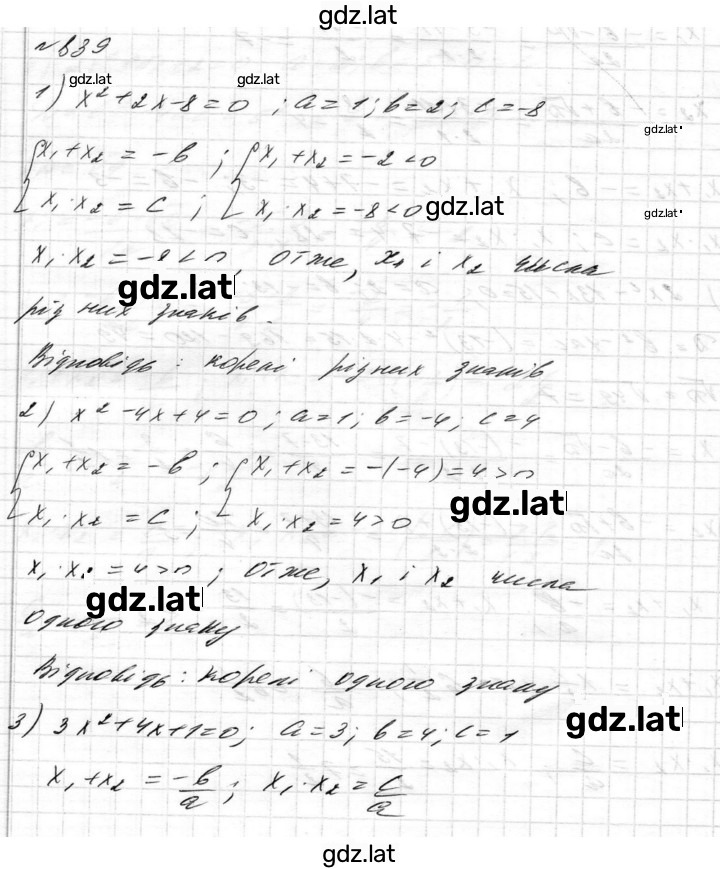 gdz.lat
№ 839
gdz.lat gdz.lat
1) x² + 2x - 8 = 0 ; a = 1; b = 2; c = -8
gdz.lat
{ x₁ + x₂ = -b ; { x₁ + x₂ = -2 < 0
x₁ · x₂ = c ; x₁ · x₂ = -8 < 0 gdz.lat
gdz.lat
x₁ · x₂ = -8 < 0, отже, x₁ і x₂ числа
gdz.lat
різних знаків.
Відповідь: корені різних знаків
2) x² - 4x + 4 = 0; a = 1; b = -4; c = 4
{ x₁ + x₂ = -b ; { x₁ + x₂ = -(-4) = 4 > 0
gdz.lat
x₁ · x₂ = c ; x₁ · x₂ = 4 > 0
x₁ · x₂ = 4 > 0 ; отже, x₁ і x₂ числа
gdz.lat
одного знаку
Відповідь: корені одного знаку
3) 3x² + 4x + 1 = 0; a = 3; b = 4; c = 1
gdz.lat
x₁ + x₂ = -b/a ; x₁ · x₂ = c/a
gdz.lat